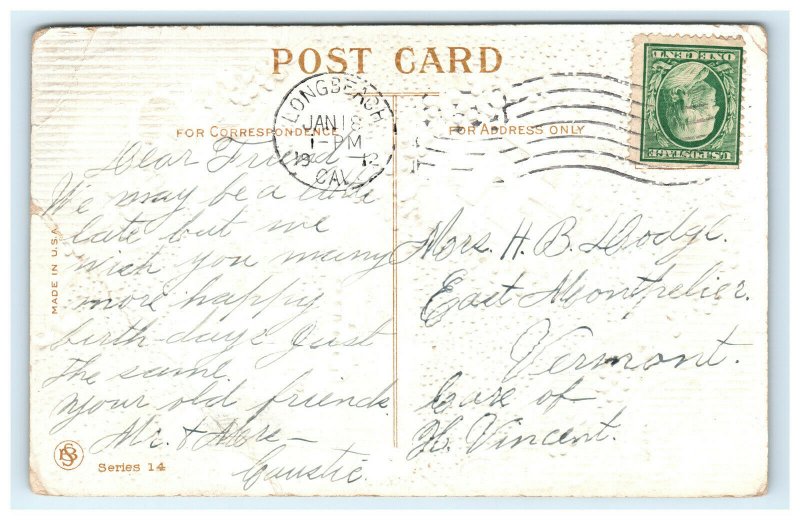 POST CARD
LONGBEACH
JAN 18
1-PM
1912
CAL.
ONE CENT
U.S. POSTAGE
FOR CORRESPONDENCE
FOR ADDRESS ONLY
Dear Friend
We may be a little
late but we
wish you many
more happy
birth-days Just
the same.
your old friends
Mr. & Mrs
Caustic.
Mrs. H. B. Dodge.
East Montpelier.
Vermont.
Care of
H. Vincent.
MADE IN U.S.A.
Series 14